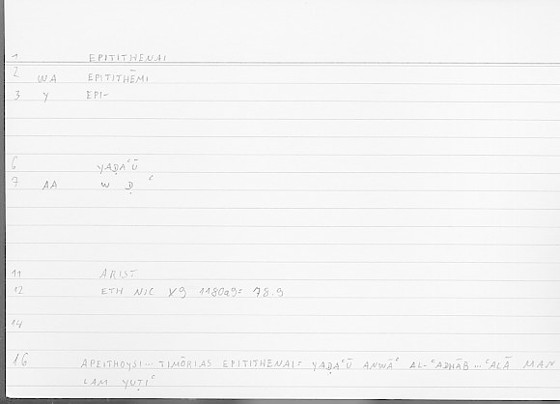 1 EPITITHENAI
2 WA EPITITHĒMI
3 Y EPI-
6 YAḌAʿŪ
7 AA W Ḍ ʿ
11 ARIST
12 ETH NIC X9 1180a9= 78.9
14
16 APEITHOYSI... TIMŌRIAS EPITITHENAI= YAḌAʿŪ ANWĀʿ AL-ʿADHĀB ... ʿALĀ MAN
LAM YUṬIʿ